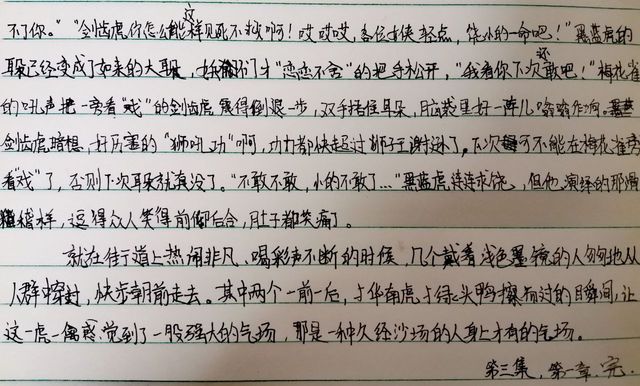 不了你。”“剑齿虎你怎么能这样见死不救啊！哎哎哎，各位女侠轻点，饶小的一命吧！”黑蓝虎的
耳朵已经变成了如来的大耳朵，女孩们才“恋恋不舍”的把手松开，“我看你下次还敢吧！”梅花雀
的吼声把一旁看“戏”的剑齿虎震得倒退一步，双手捂住耳朵，脑袋里好一阵儿嗡嗡作响。
剑齿虎暗想，好厉害的“狮吼功”啊，功力都快赶过狮子王谢逊了。下次可不能在梅花雀旁
看“戏”了，否则下次耳朵就真没了。“不敢不敢，小的不敢了…”黑蓝虎连连求饶，但他演绎的那滑
稽样，逗得众人笑得前仰后合，肚子都笑痛了。
就在街道上热闹非凡、喝彩声不断的时候，几个戴着浅色墨镜的人匆匆地从
人群中穿过，快步朝前走去。其中两个一前一后，与华南虎与绿头鸭擦而过的瞬间，让
这一虎一禽感觉到了一股强大的气场，那是一种久经沙场的人身上才有的气场。
第三集，第一章 完.